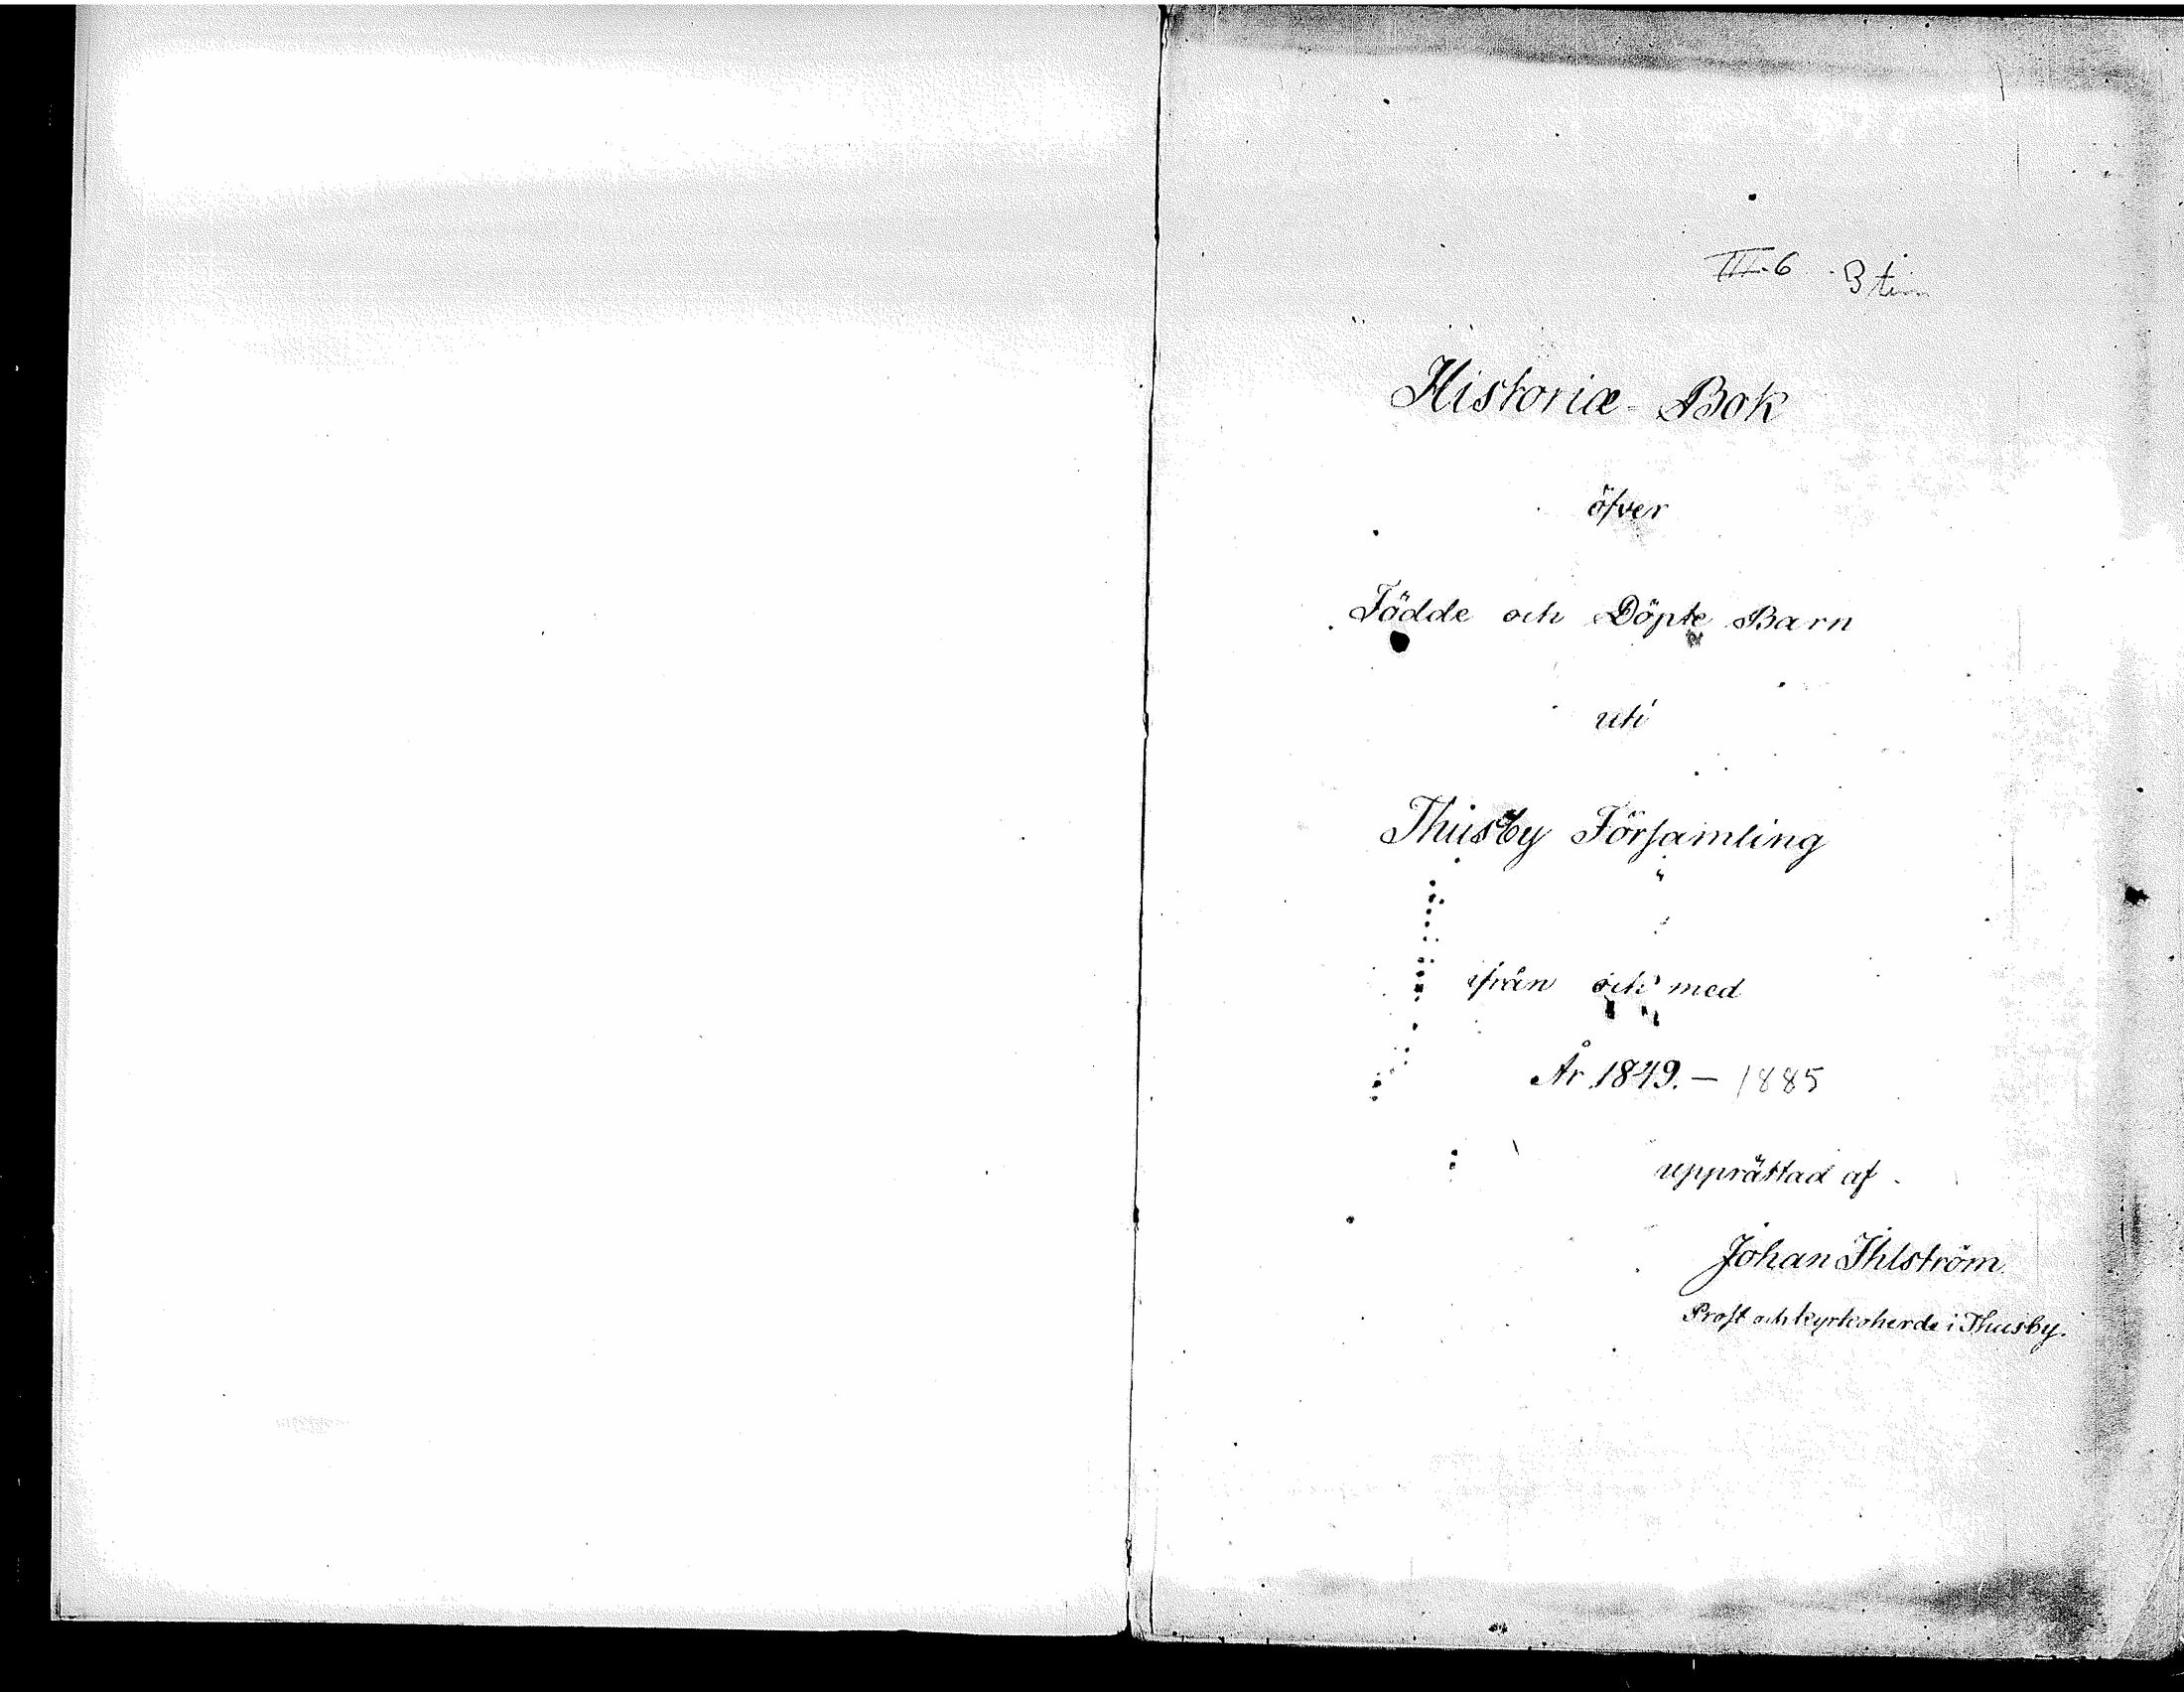 III.6
Historiæ-Bok
öfver
Födde och Döpte Barn
uti
Thusby Församling
ifrån och med
År 1849. – 1885
upprättad af
Johan Ihlström
Prost och kyrkoherde i Thusby.